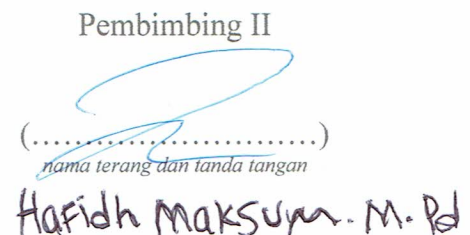 Pembimbing II
(..............................)
nama terang dan tanda tangan
Hafidh Maksum. M. Pd